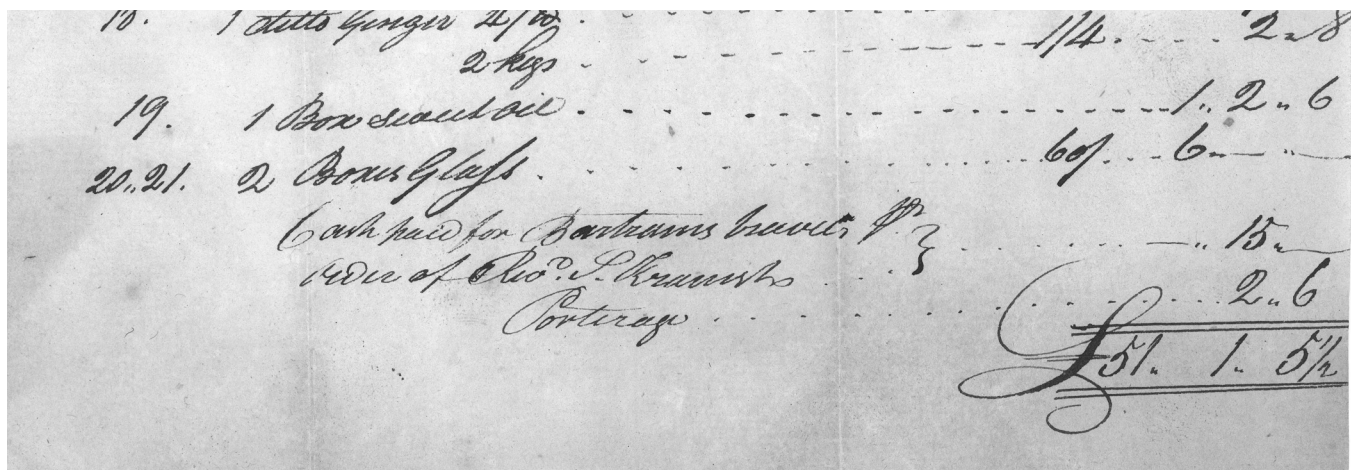 18. 1 ditto Ginger 2/10 1/4 2 " 8
2 kegs
19. 1 Box sweet oil 1 " 2 " 6
20 " 21. 2 Boxes Glass 60/ 6 " — "
Cash paid for Bartrams travels pr } " 15 " —
order of Revd. S. Kramsh
Porterage 2 " 6
£51 " 1 " 5 1/2